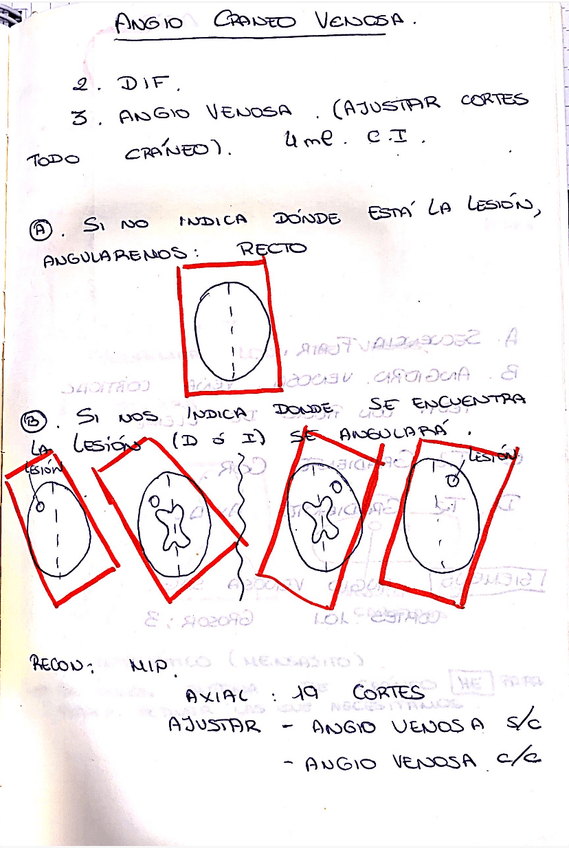 ANGIO CRANEO VENOSA.
2. DIF.
3. ANGIO VENOSA. (AJUSTAR CORTES
TODO CRÁNEO). 4ml. C.I.
Ⓐ. SI NO INDICA DÓNDE ESTÁ LA LESIÓN,
ANGULAREMOS: RECTO
Ⓑ. SI NOS INDICA DONDE SE ENCUENTRA
LA LESIÓN (D ó I) SE ANGULARÁ.
LESIÓN
LESIÓN
RECON: MIP.
AXIAL: 19 CORTES
AJUSTAR - ANGIO VENOSA S/C
- ANGIO VENOSA C/C